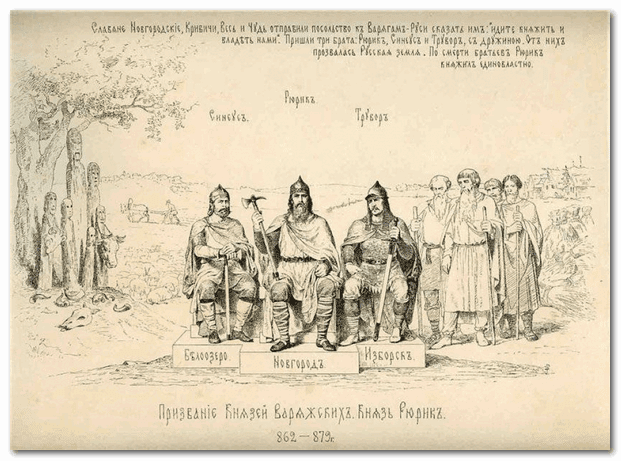 Славяне Новгородскіе, Кривичи, Весь и Чудь отправили посольство къ Варягамъ-Руси сказать имъ: "идите княжить и
владѣть нами". Пришли три брата: Рюрикъ, Синеусъ и Труворъ, съ дружиною. Отъ нихъ
прозвалась Русская земля. По смерти братьевъ Рюрикъ
княжилъ единовластно.
Рюрикъ.
Синеусъ.
Труворъ
Бѣлоозеро.
Новгородъ.
Изборскъ.
Призваніе Князей Варяжскихъ. Князь Рюрикъ.
862 — 879г.